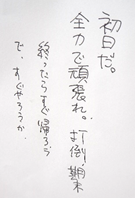 初日だ。
全力で頑張れ。打倒、期末
終ったらすぐ帰ろう
で、すぐやろうか、